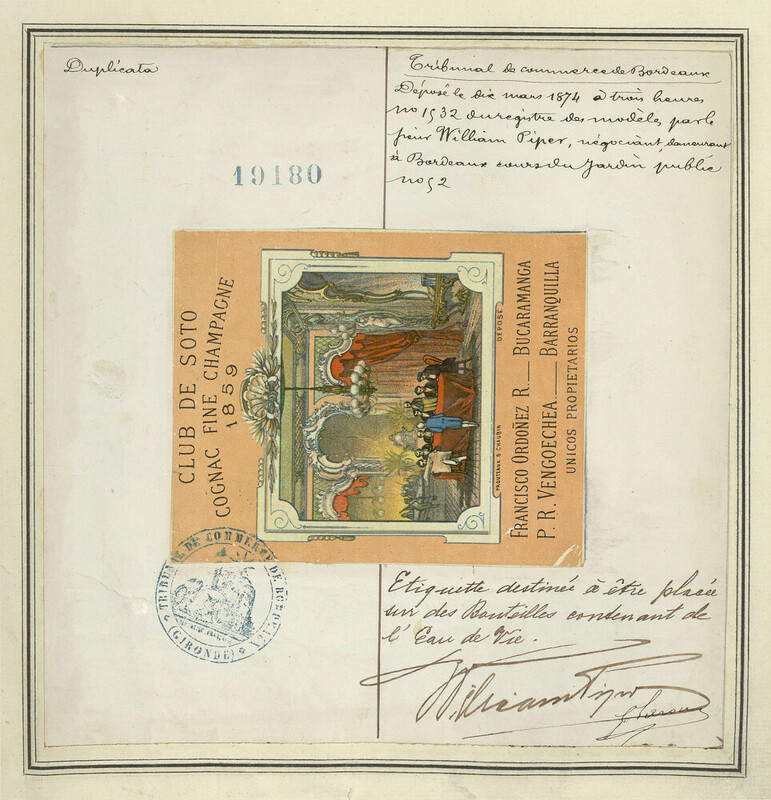 Duplicata
Tribunal de commerce de Bordeaux
Déposé le dix mars 1874 à trois heures
no 1532 du registre des modèles par le
sieur William Piper, négociant, demeurant
à Bordeaux cours du Jardin public
no 52
19180
CLUB DE SOTO
COGNAC FINE CHAMPAGNE
1859
DÉPOSÉ
PROUTEAUX & CHAUBIN
FRANCISCO ORDOÑEZ R.__ BUCARAMANGA
P. R. VENGOECHEA.___ BARRANQUILLA
UNICOS PROPIETARIOS
TRIBUNAL DE COMMERCE DE BORDEAUX
(GIRONDE)
Etiquette destinée à être placée
sur des Bouteilles contenant de
l'Eau de Vie.
William Piper